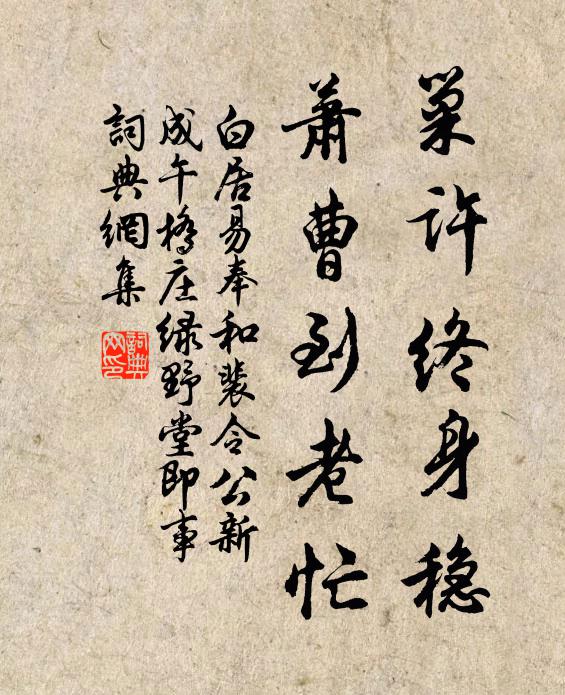 巢许终身稳
萧曹到老忙
白居易奉和裴令公新
成午桥庄绿野堂即事
詞典網集
詞典
网印